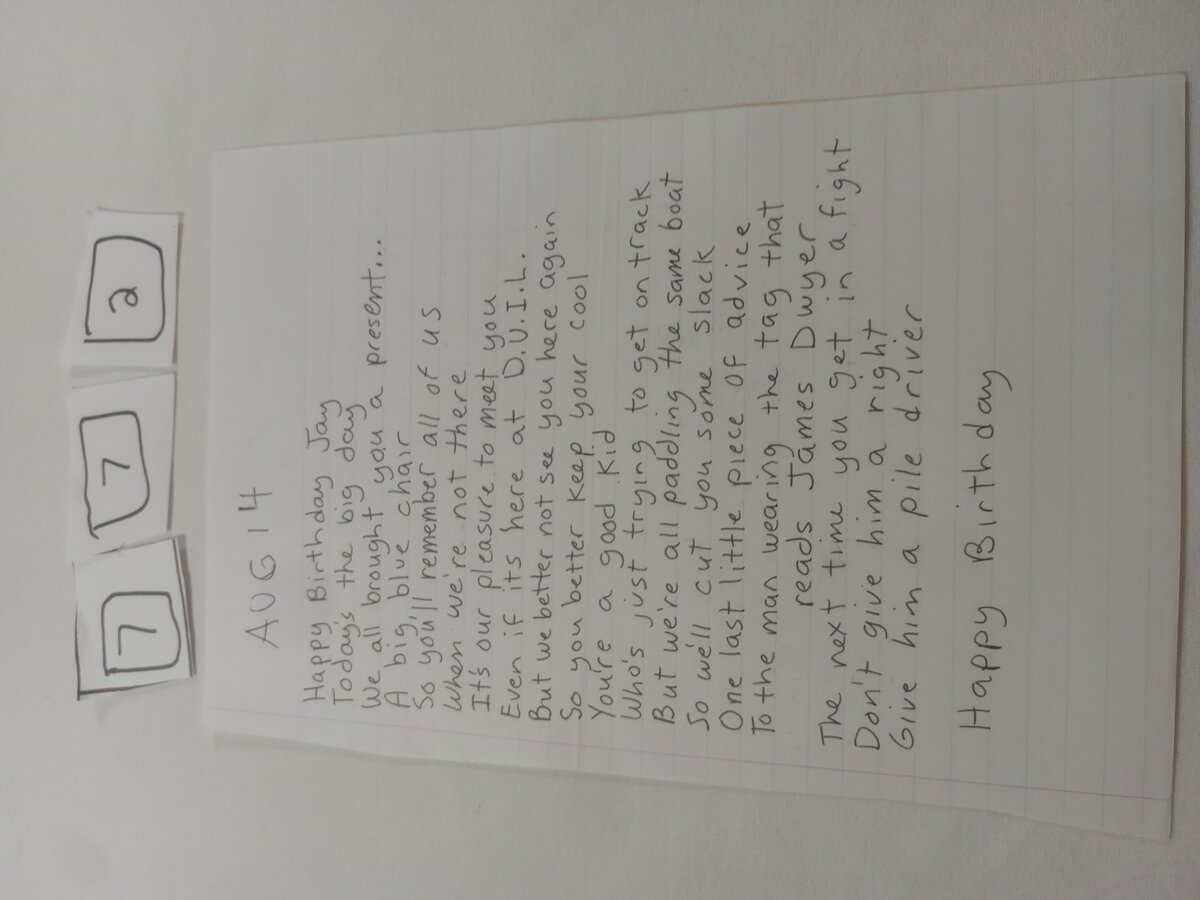 7 7 2
AUG 14
Happy Birthday Jay
Today's the big day
We all brought you a present...
A big, blue chair
So you'll remember all of us
When we're not there
It's our pleasure to meet you
Even if its here at D.U.I.L.
But we better not see you here again
So you better keep your cool
You're a good kid
Who's just trying to get on track
But we're all paddling the same boat
So we'll cut you some slack
One last little piece of advice
To the man wearing the tag that
reads James Dwyer
The next time you get in a fight
Don't give him a right
Give him a pile driver
Happy Birthday